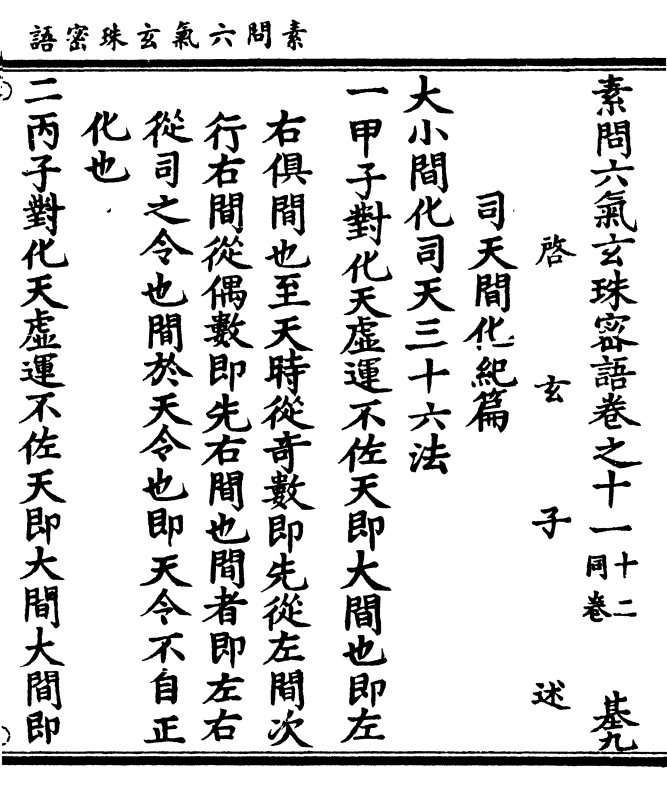 素問六氣玄珠密語
素問六氣玄珠密語卷之十一 十二同卷 基九
啓玄子述
司天間化紀篇
大小間化司天三十六法
一甲子對化天虛運不佐天即大間也即左
右俱間也至天時從奇數即先從左間次
行右間從偶數即先右間也間者即左右
從司之令也間於天令也即天令不自正
化也
二丙子對化天虛運不佐天即大間大間即